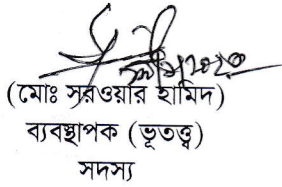 (মোঃ সরওয়ার হামিদ)
ব্যবস্থাপক (ভূতত্ত্ব)
সদস্য